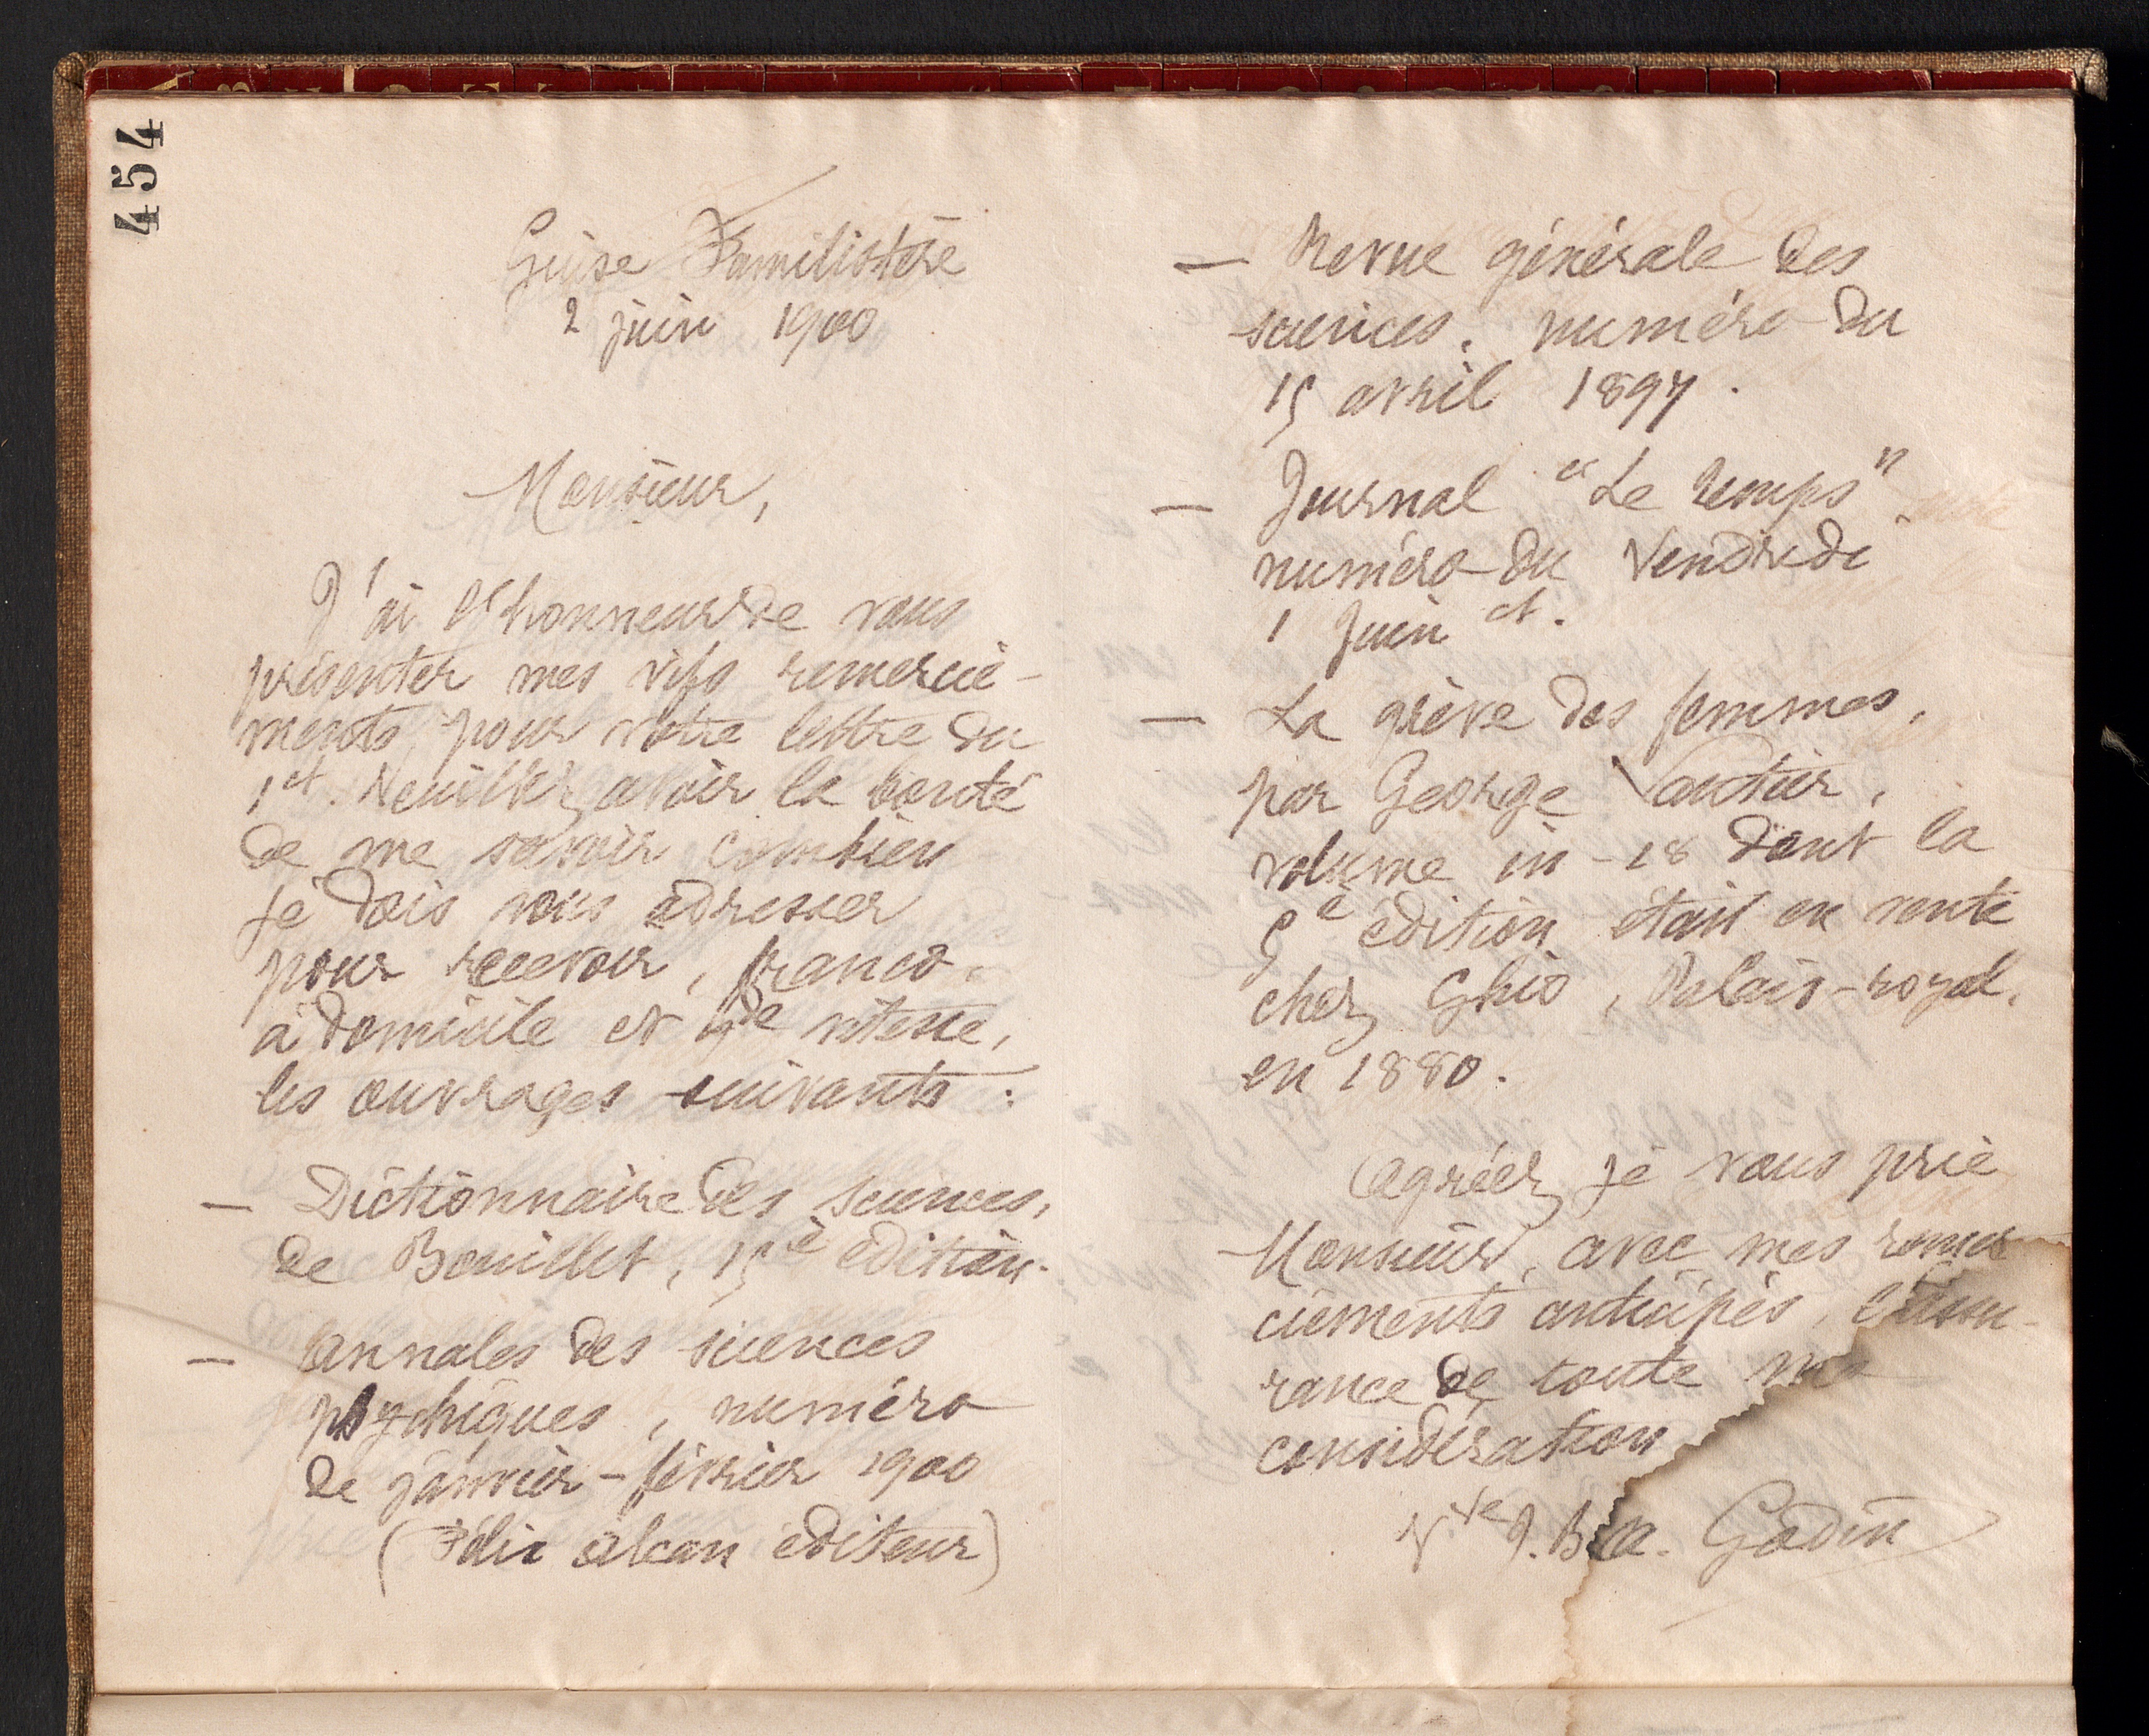 454
Guise Familistère
2 juin 1900
Monsieur,
J'ai l'honneur de vous
présenter mes vifs remercie-
ments pour votre lettre du
1 ct. Veuillez avoir la bonté
de me savoir combien
je dois vous adresser
pour recevoir, franco
à domicile et gde vitesse,
les ouvrages suivants :
— Dictionnaire des sciences,
de Bouillet, 15e édition.
— Annales des sciences
psychiques, numéro
de janvier-février 1900
(Félix Alcan éditeur)
— Revue générale des
sciences. numéro du
15 avril 1897.
— Journal "Le temps"
numéro du Vendredi
1 Juin ct.
— La grève des femmes,
par George Vautier,
volume in-18 dont la
5e édition était en vente
chez Ghio, Palais-royal,
en 1880.
Agréez je vous prie
Monsieur, avec mes remer
ciements anticipés, l'assu-
rance de toute ma
considération
Vve J. Bte A. Godin